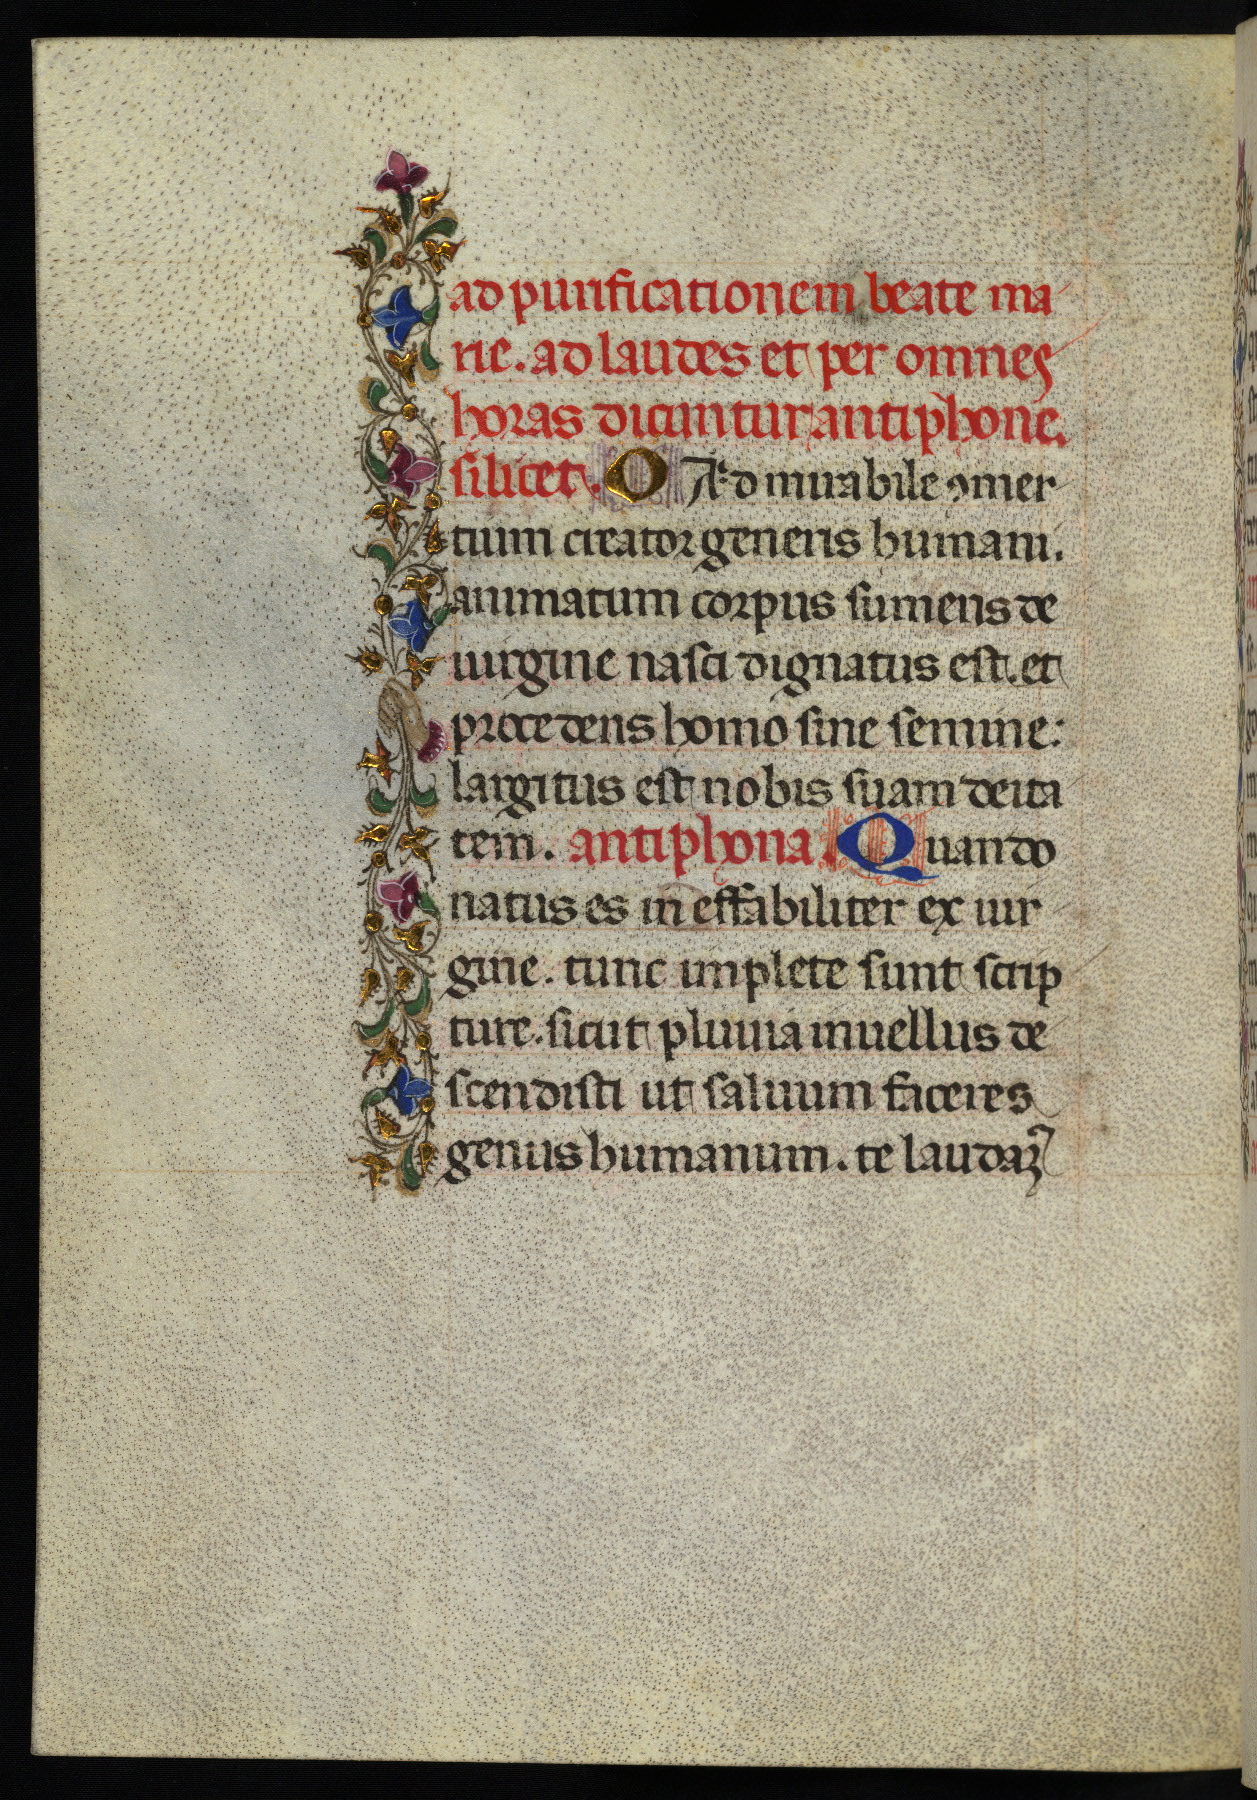 ad purificationem beate ma
rie. ad laudes et per omnes
horas dicuntur antiphone.
silicet. O Admirabile ꝯmer
tium creator generis humani.
animatum corpus sumens de
uirgine nasci dignatus est. et
procedens homo sine semine:
largitus est nobis suam deita
tem. antiphona Quando
natus es ineffabiliter ex uir
gine. tunc implete sunt scrip
ture. sicut pluuia inuellus de
scendisti ut saluum faceres
genus humanum. te laudaꝫ